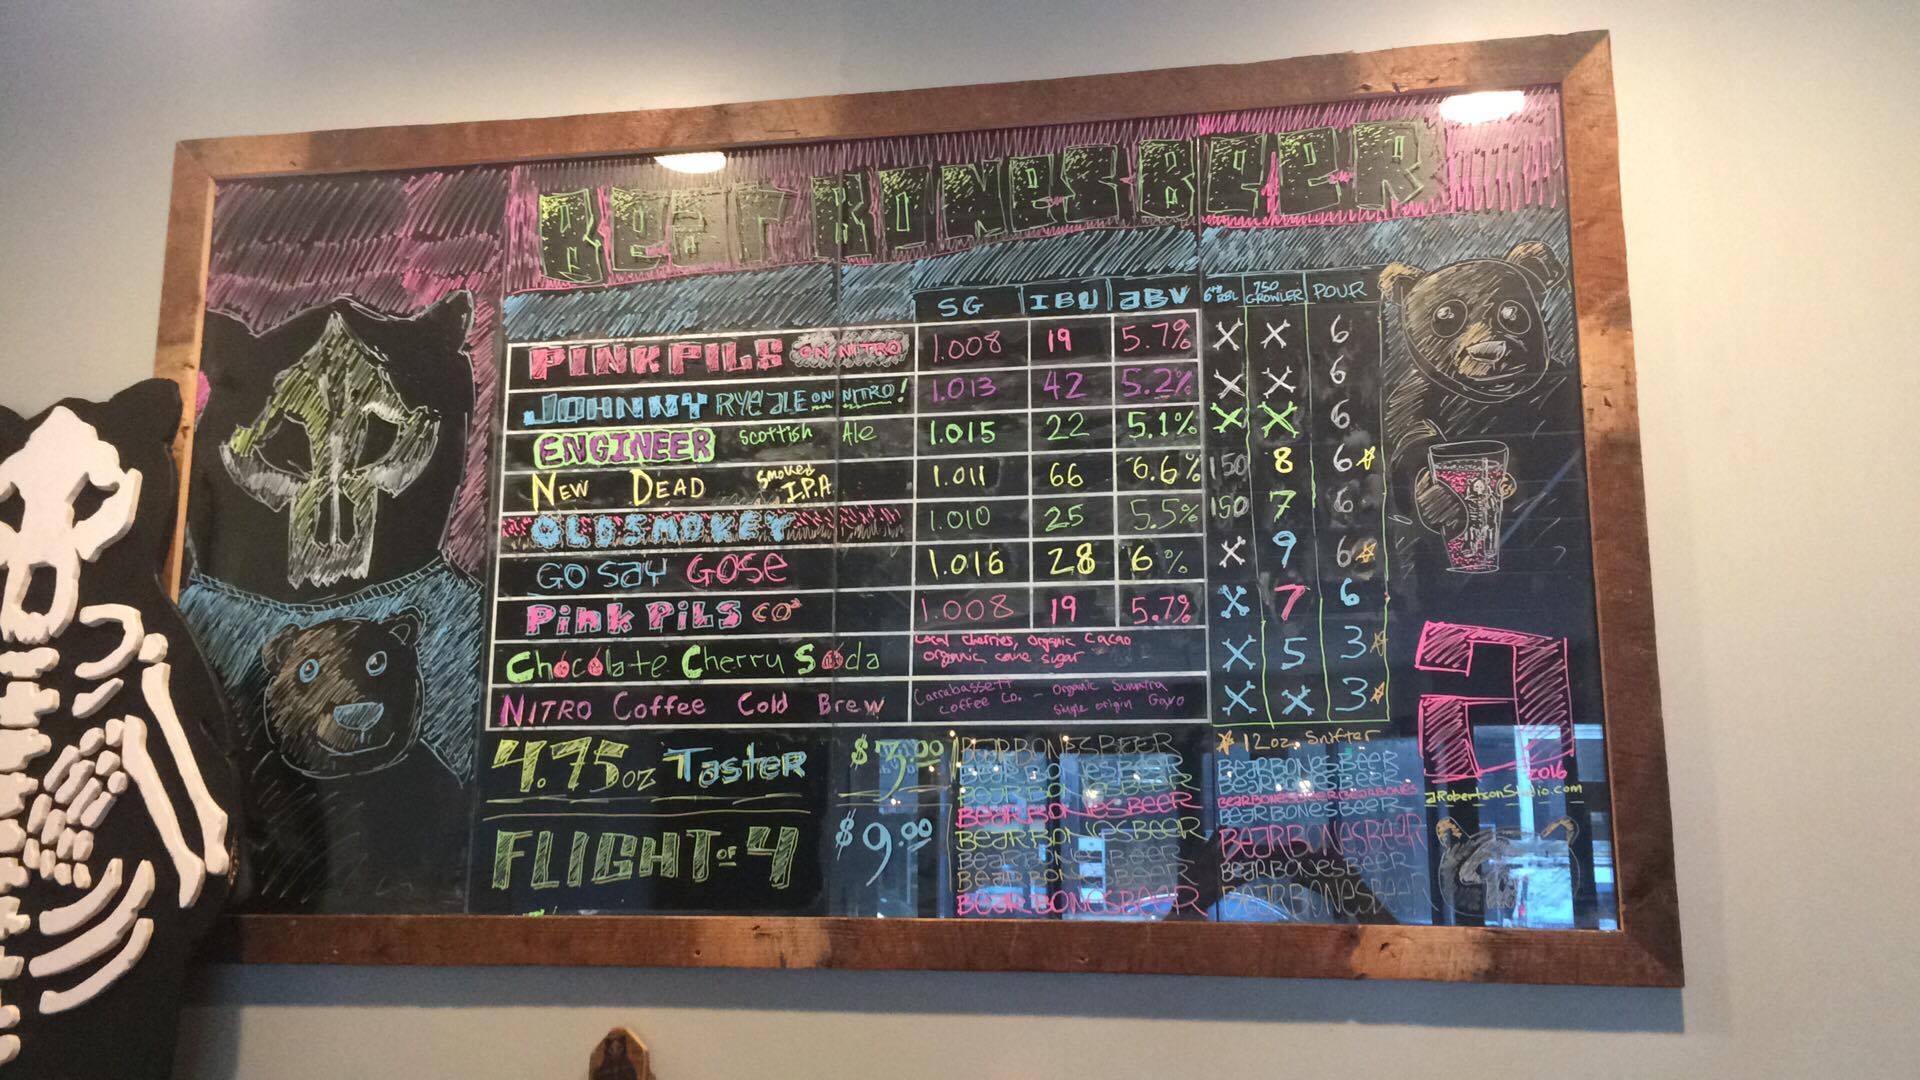 Bear Bones Beer
SG IBU ABV 6th BBL 750 GROWLER POUR
PINK PILS ON NITRO 1.008 19 5.7% X X 6
JOHNNY RYE ALE ON NITRO! 1.013 42 5.2% X X 6
ENGINEER Scottish Ale 1.015 22 5.1% X X 6
NEW DEAD Smoked I.P.A 1.011 66 6.6% 150 8 6
OLD SMOKEY 1.010 25 5.5% 150 7 6
GO SAY GOSE 1.016 28 6% X 9 6
Pink PiLS CO² 1.008 19 5.7% X 7 6
Chocolate Cherry Soda Local cherries, organic Cacao X 5 3
organic cane sugar
NITRO Coffee Cold Brew Carrabassett Coffee Co. - Organic Sumatra X X 3
Single origin Gayo
4.75oz Taster $3.00
FLIGHT OF 4 $9.00
12oz. Snifter
BEARBONESBEER
BEARBONESBEER
BEARBONESBEER
BEARBONESBEER
BEARBONESBEER
BEARBONESBEER
BEARBONESBEER
BEARBONESBEER
BEARBONESBEER
BEARBONESBEER
BEARBONESBEERBEARBONES
BEARBONESBEER
BEARBONESBEER
BEARBONESBEER
BEARBONESBEER
a
2016
aRobertsonStudio.com